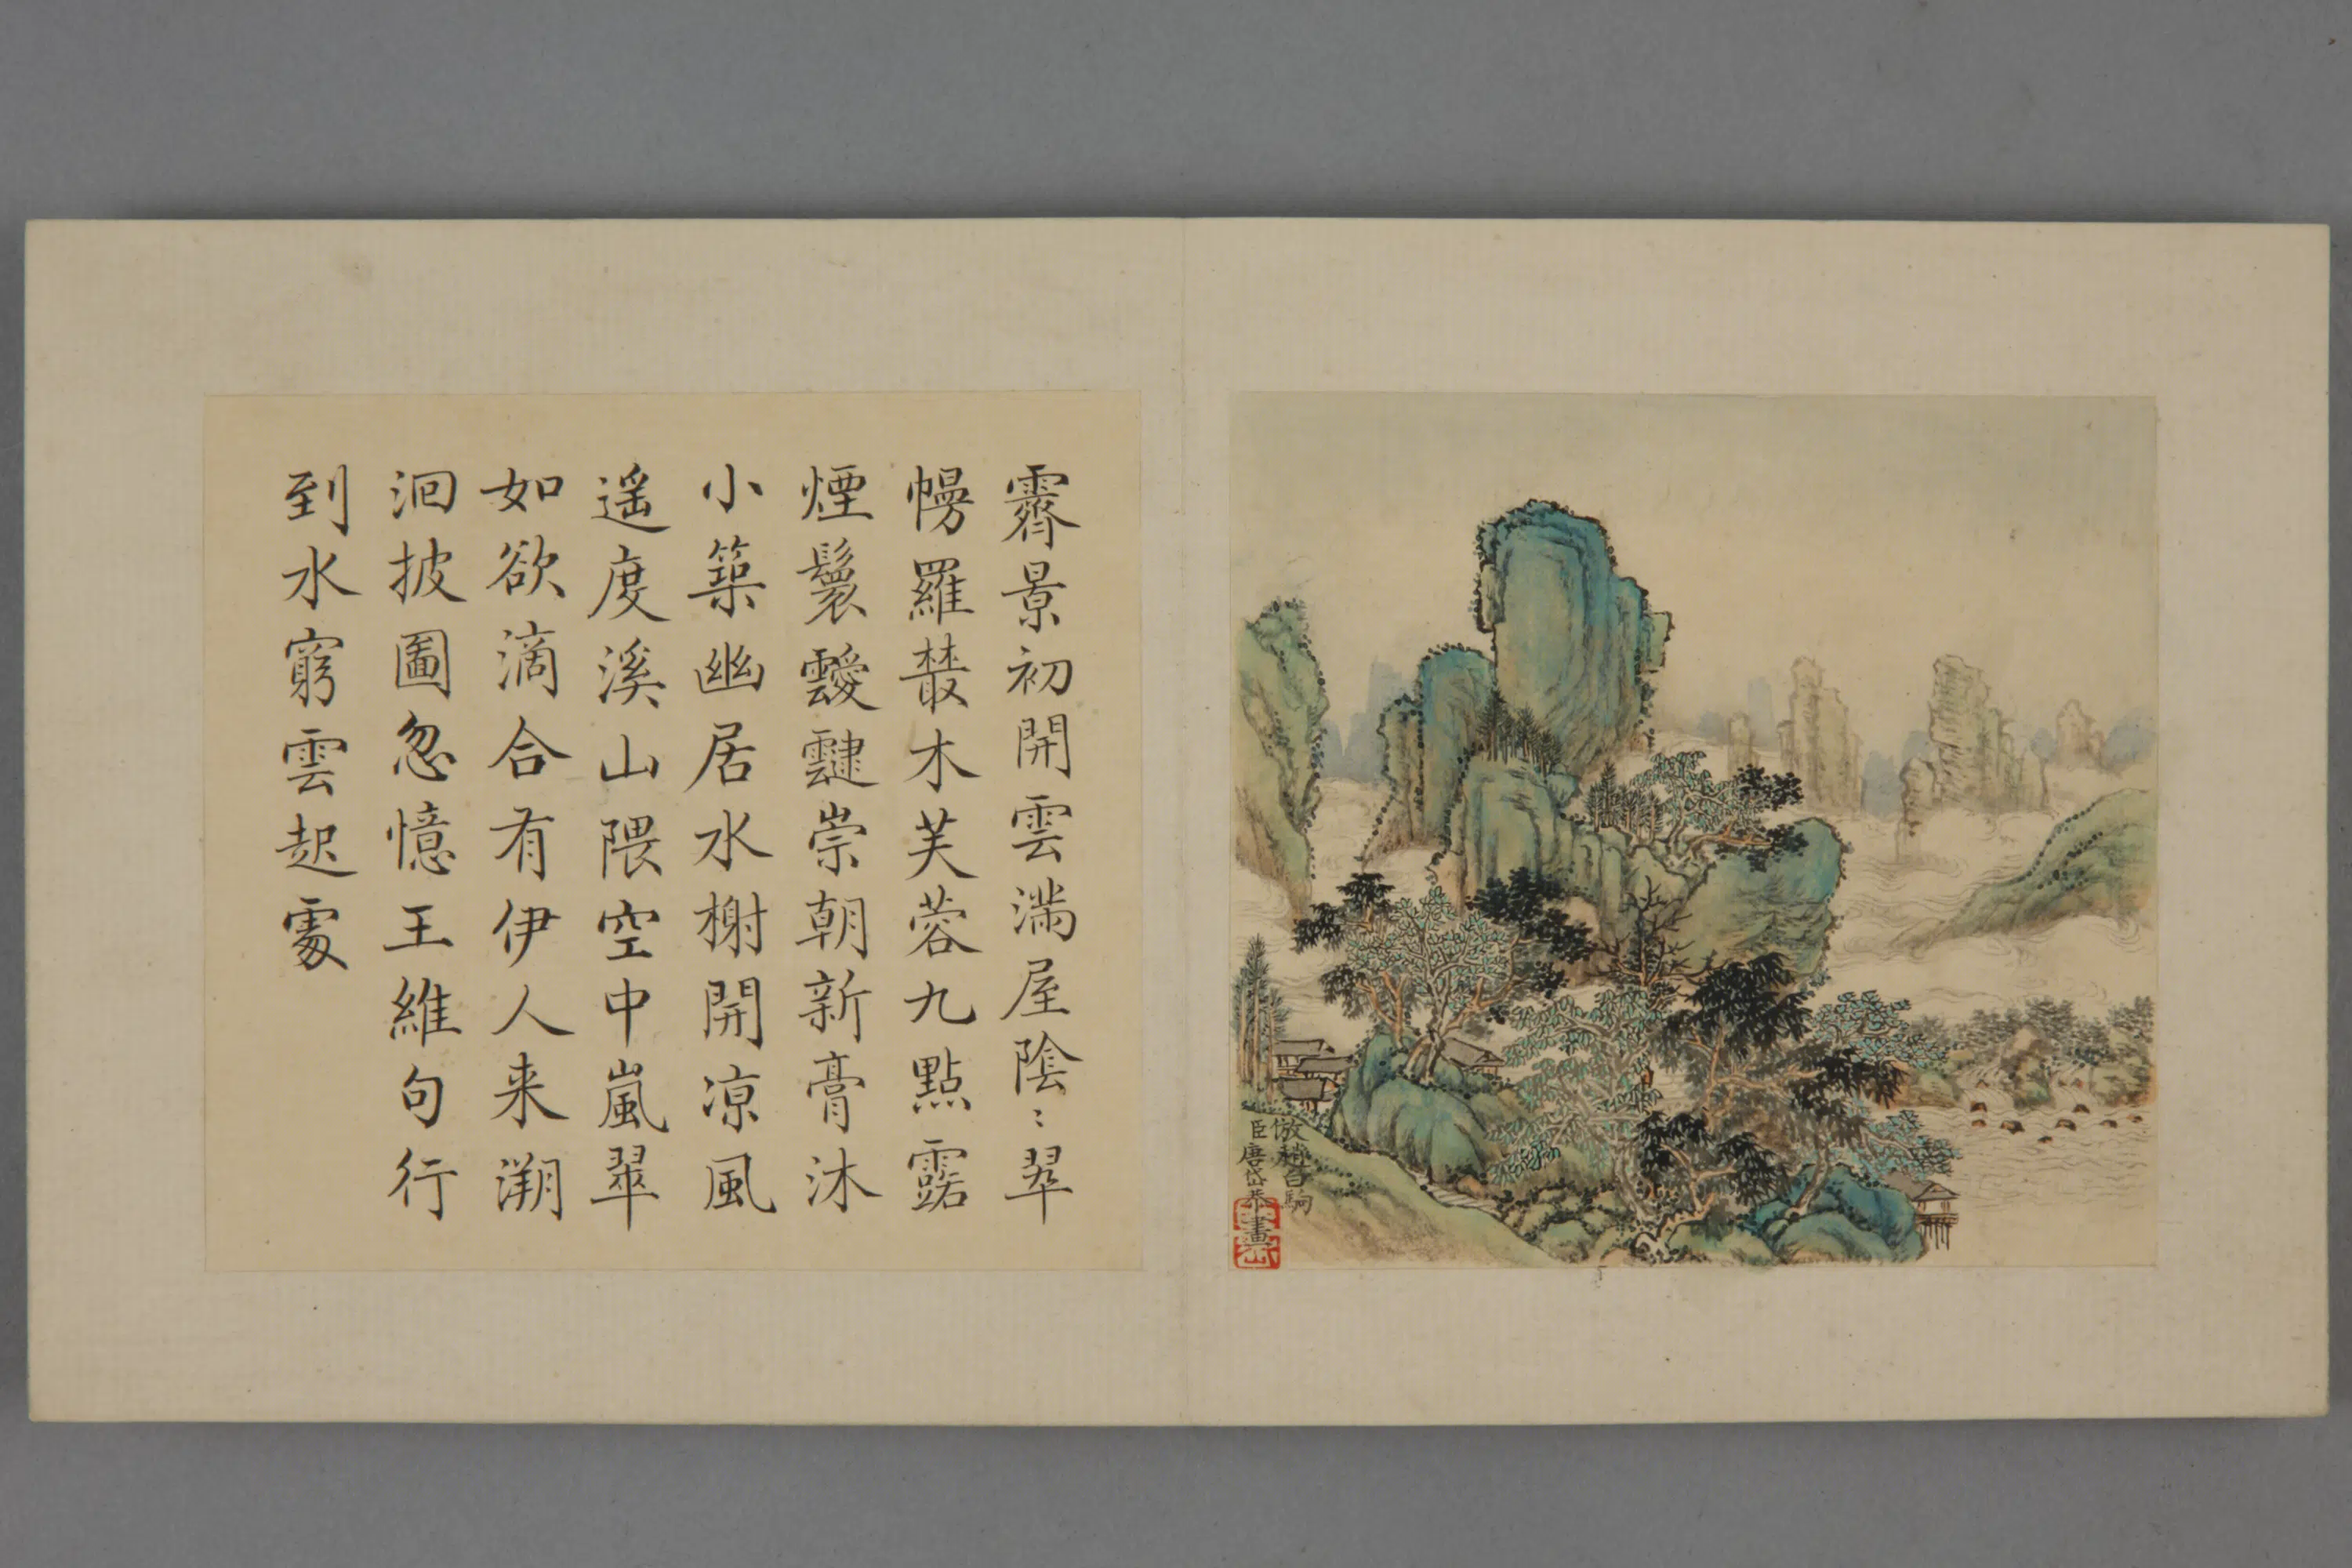 霽景初開雲滿屋陰〻翠
幔羅藂木芙蓉九點露
煙鬟靉靆崇朝新膏沐
小築幽居水榭開涼風
遥度溪山隈空中嵐翠
如欲滴合有伊人来溯
洄披圖忽憶王維句行
到水窮雲起處
倣趙百駒
臣唐岱恭畫